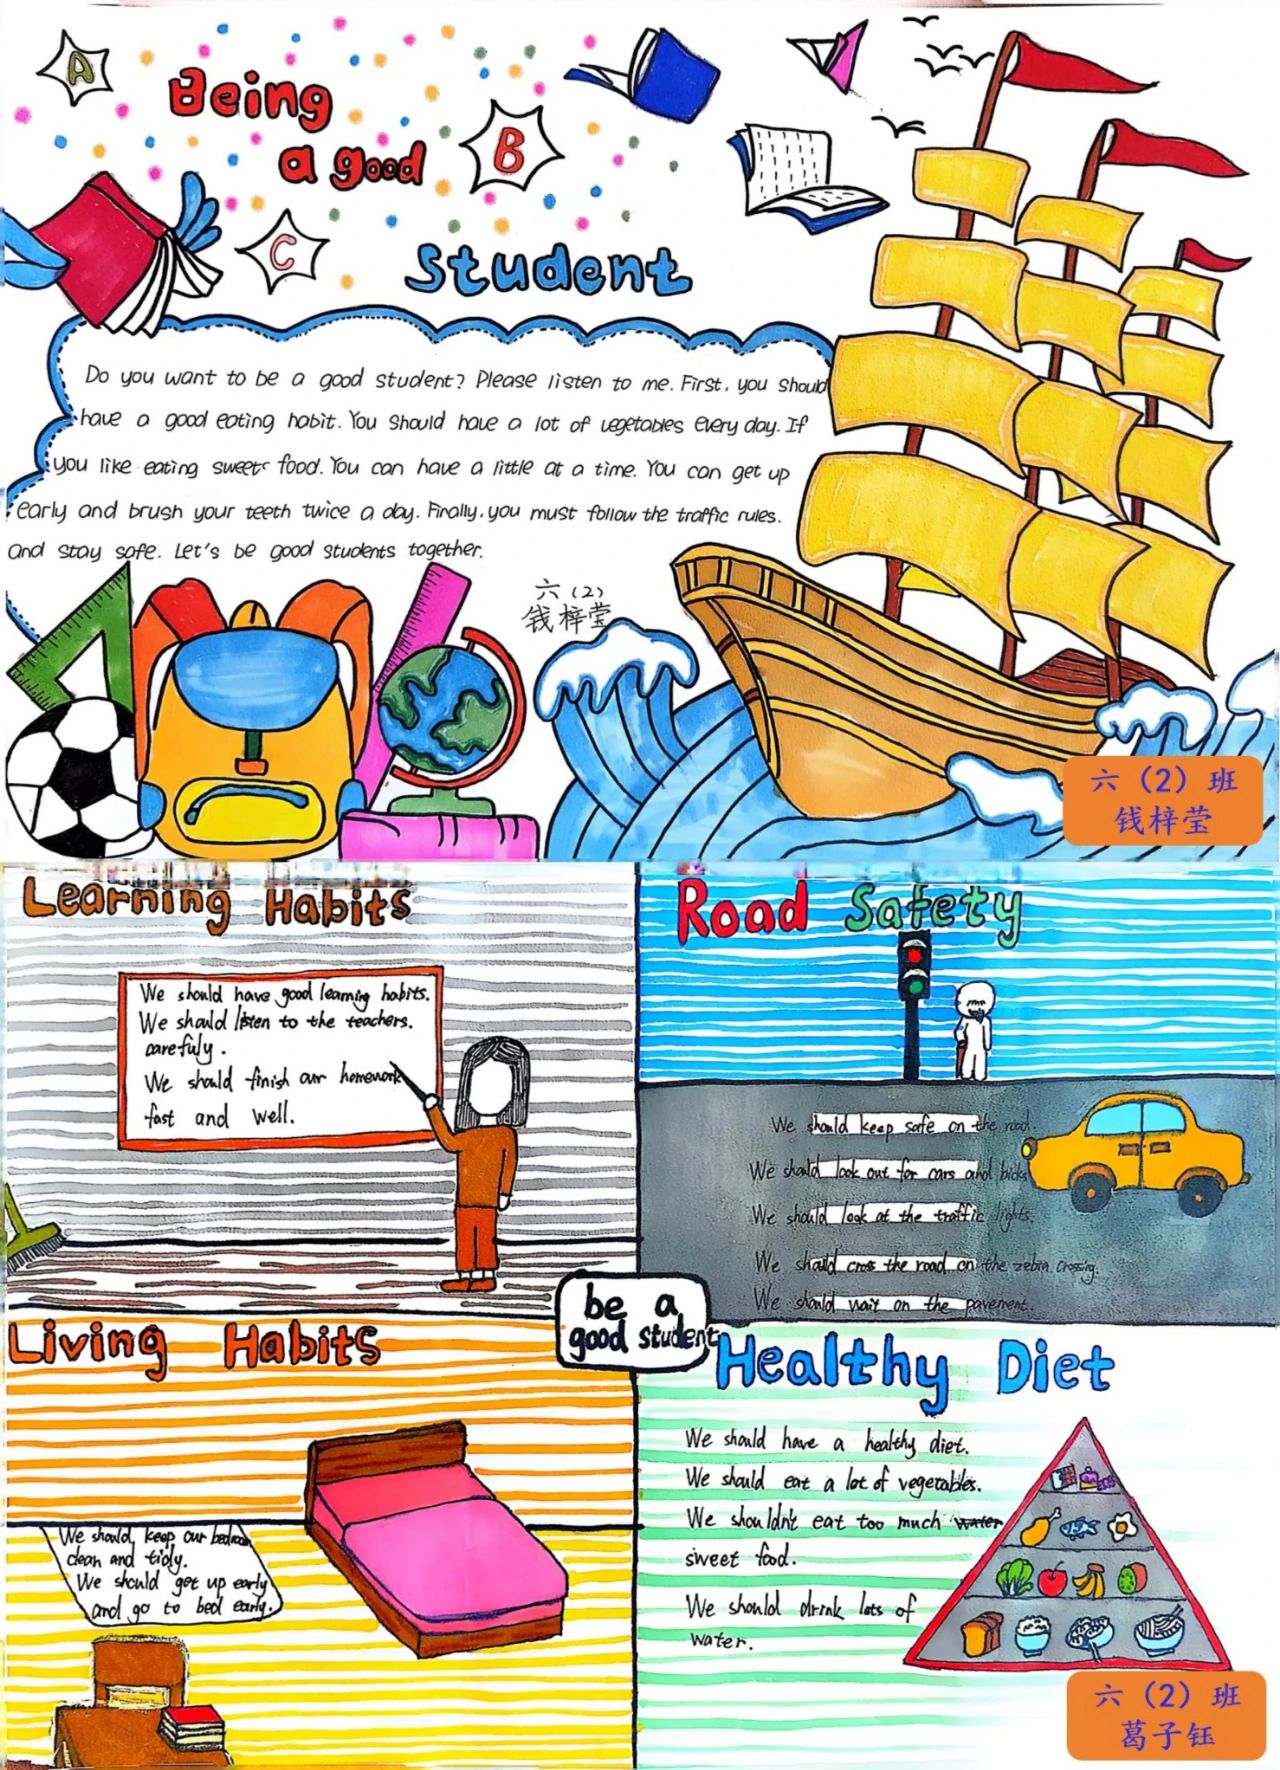 A
Being
a good
B
C
Student
Do you want to be a good student? Please listen to me. First, you should
have a good eating habit. You should have a lot of vegetables every day. If
you like eating sweet food. You can have a little at a time. You can get up
early and brush your teeth twice a day. Finally, you must follow the traffic rules.
and stay safe. Let's be good students together.
六（2）
钱梓莹
六（2）班
钱梓莹
Learning Habits
We should have good learning habits.
We should listen to the teachers.
carefuly.
We should finish our homework
fast and well.
Road Safety
We should keep safe on the road.
We should look out for cars and bicks
We should look at the traffic lights.
We should cross the road on the zebra crossing.
We should wait on the pavement.
be a
good student
Living Habits
We should keep our bedroom
clean and tidy.
We should get up early
and go to bed early.
Healthy Diet
We should have a healthy diet.
We should eat a lot of vegetables.
We shouldn't eat too much water
sweet food.
We should drink lots of
water.
六（2）班
葛子钰